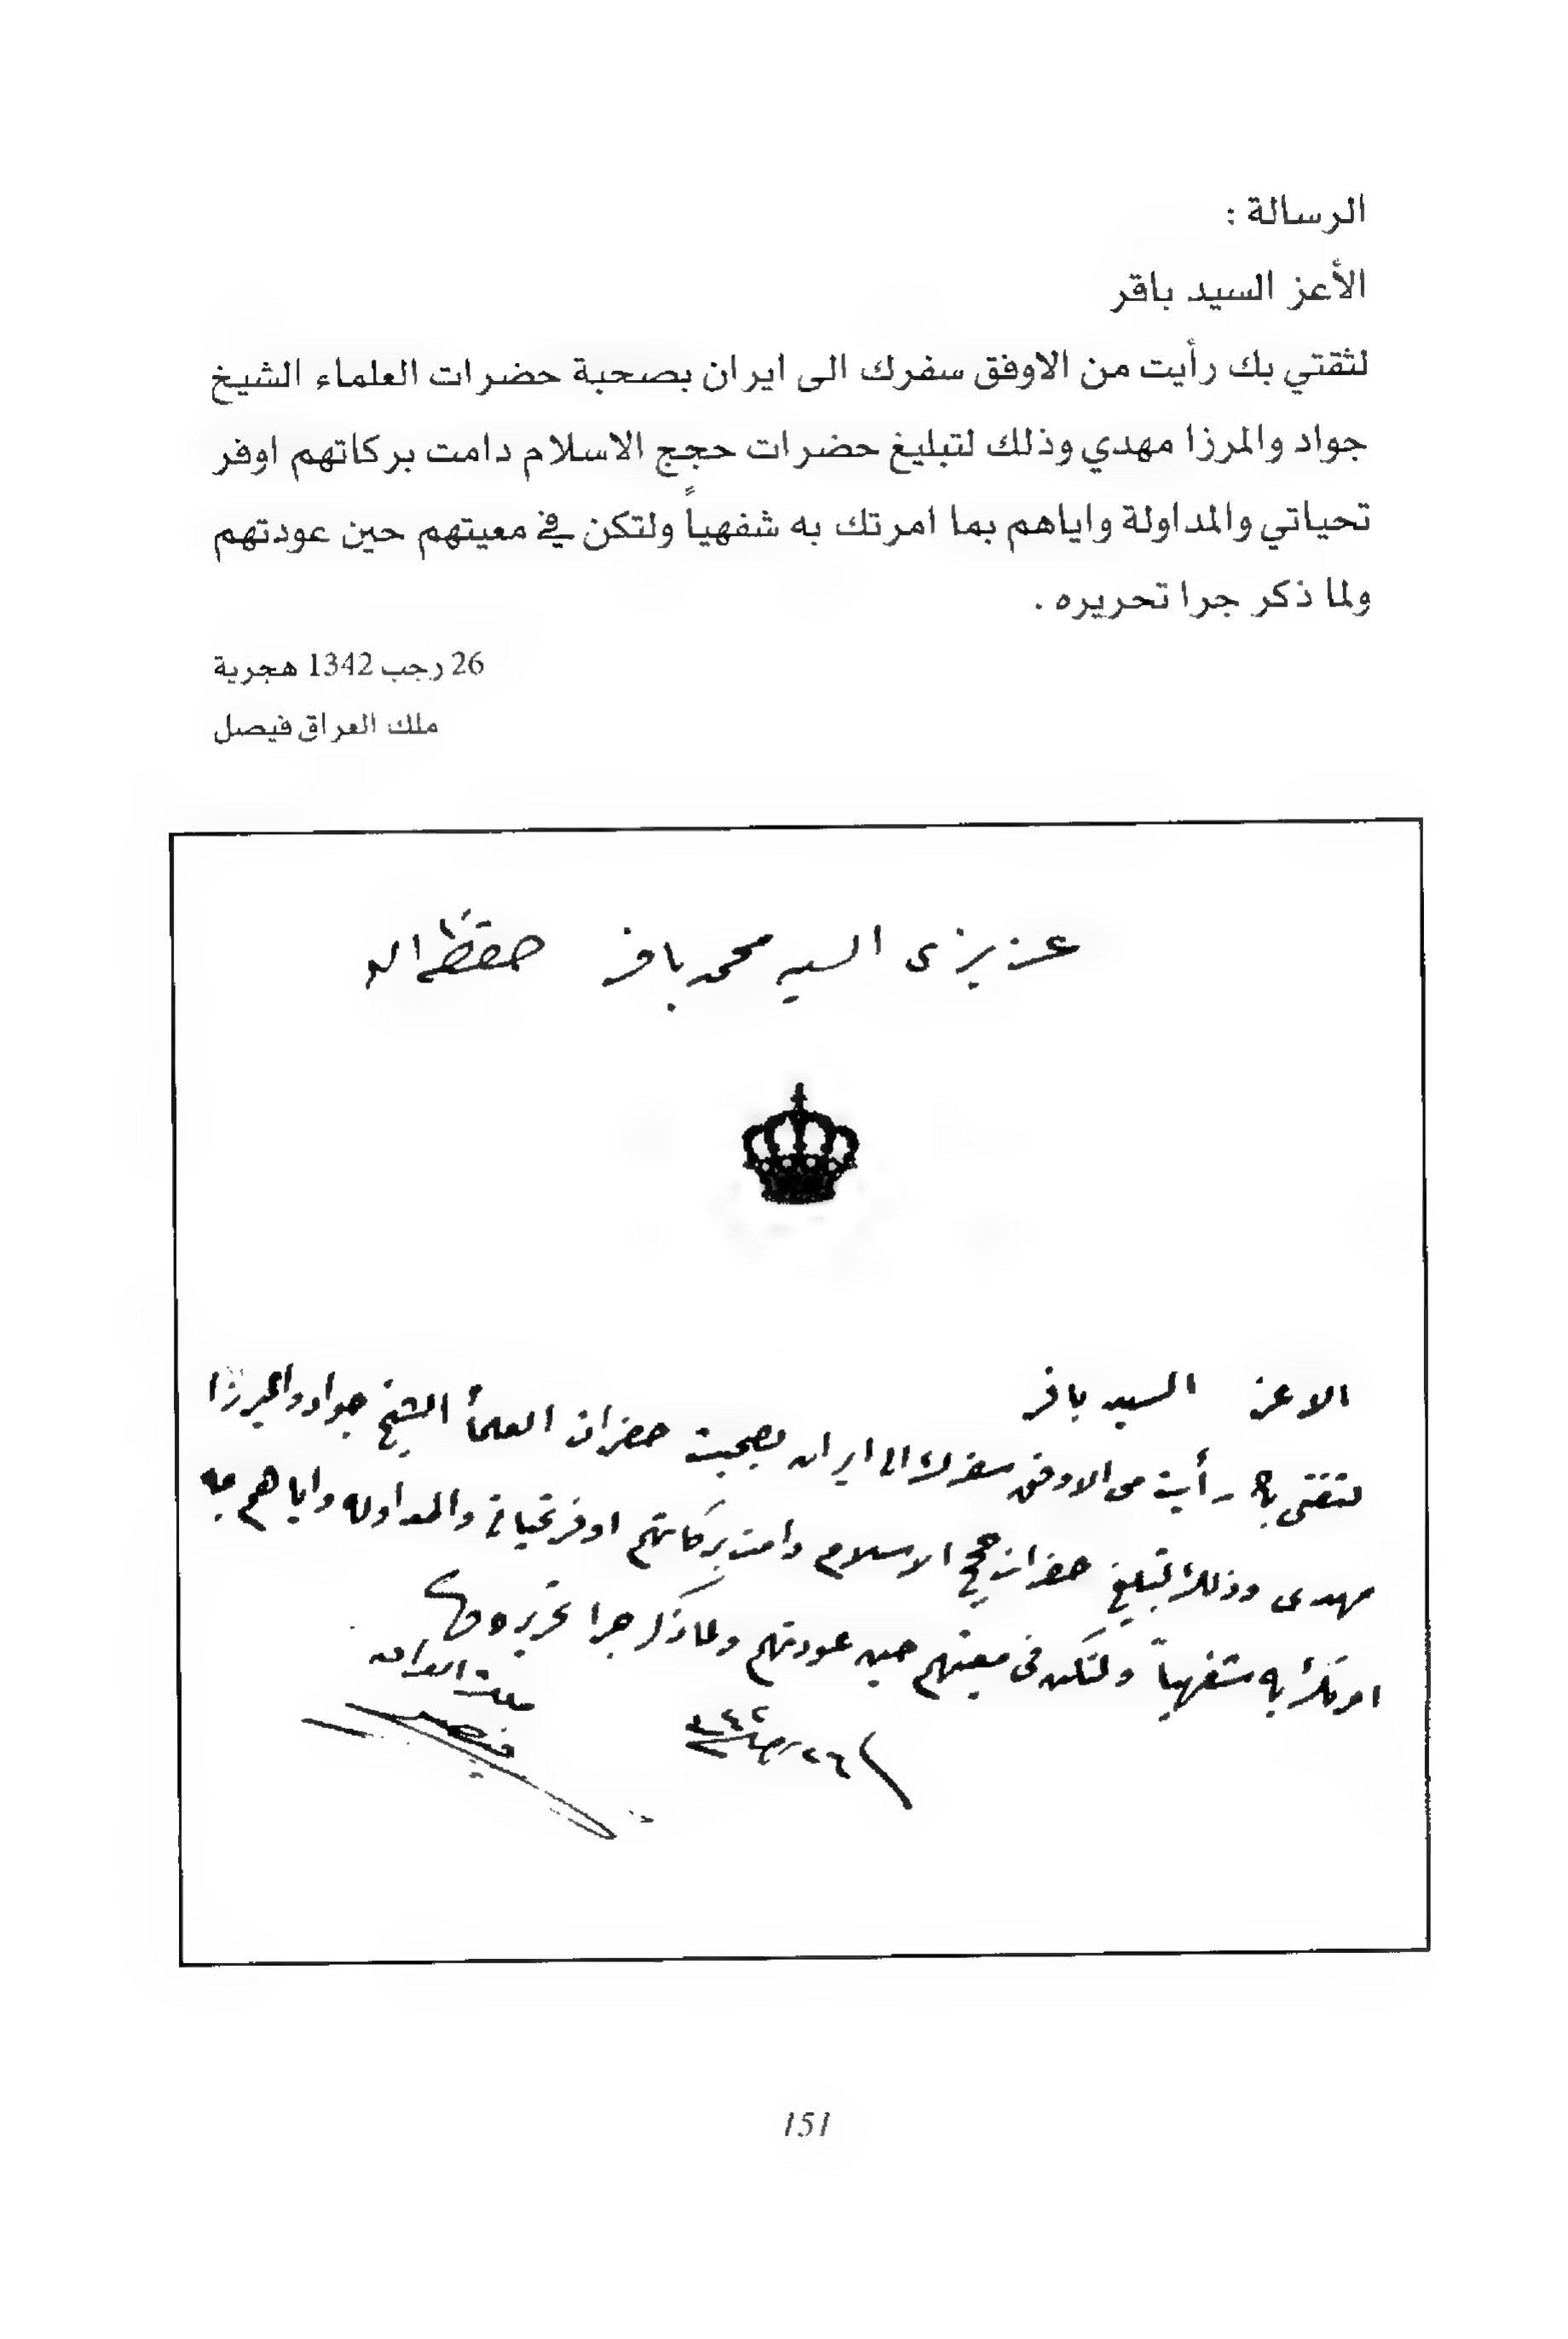 الرسالة :
الأعز السيد باقر
لثقتي بك رأيت من الاوفق سفرك الى ايران بصحبة حضرات العلماء الشيخ
جواد والمرزا مهدي وذلك لتبليغ حضرات حجج الاسلام دامت بركاتهم اوفر
تحياتي والمداولة واياهم بما امرتك به شفهياً ولتكن في معيتهم حين عودتهم
ولما ذكر جرا تحريره .
26 رجب 1342 هجرية
ملك العراق فيصل
عزيزى السيد محمد باقر حفظه الله
الاعز السيد باقر
لثقتى بك رأيت من الاوفق سفرك الى ايران بصحبت حضرات العلمأ الشيخ جواد والميرزا
مهدى وذلك لتبليغ حضرات حجج الاسلام دامت بركاتهم اوفر تحياتى والمداوله واياهم بما
امرتك به شفهياً ولتكن فى معيتهم حين عودتهم ولما ذكر جرا تحريره
ملك العراق
فيصل
٢٦ رجب ٣٤٢
151